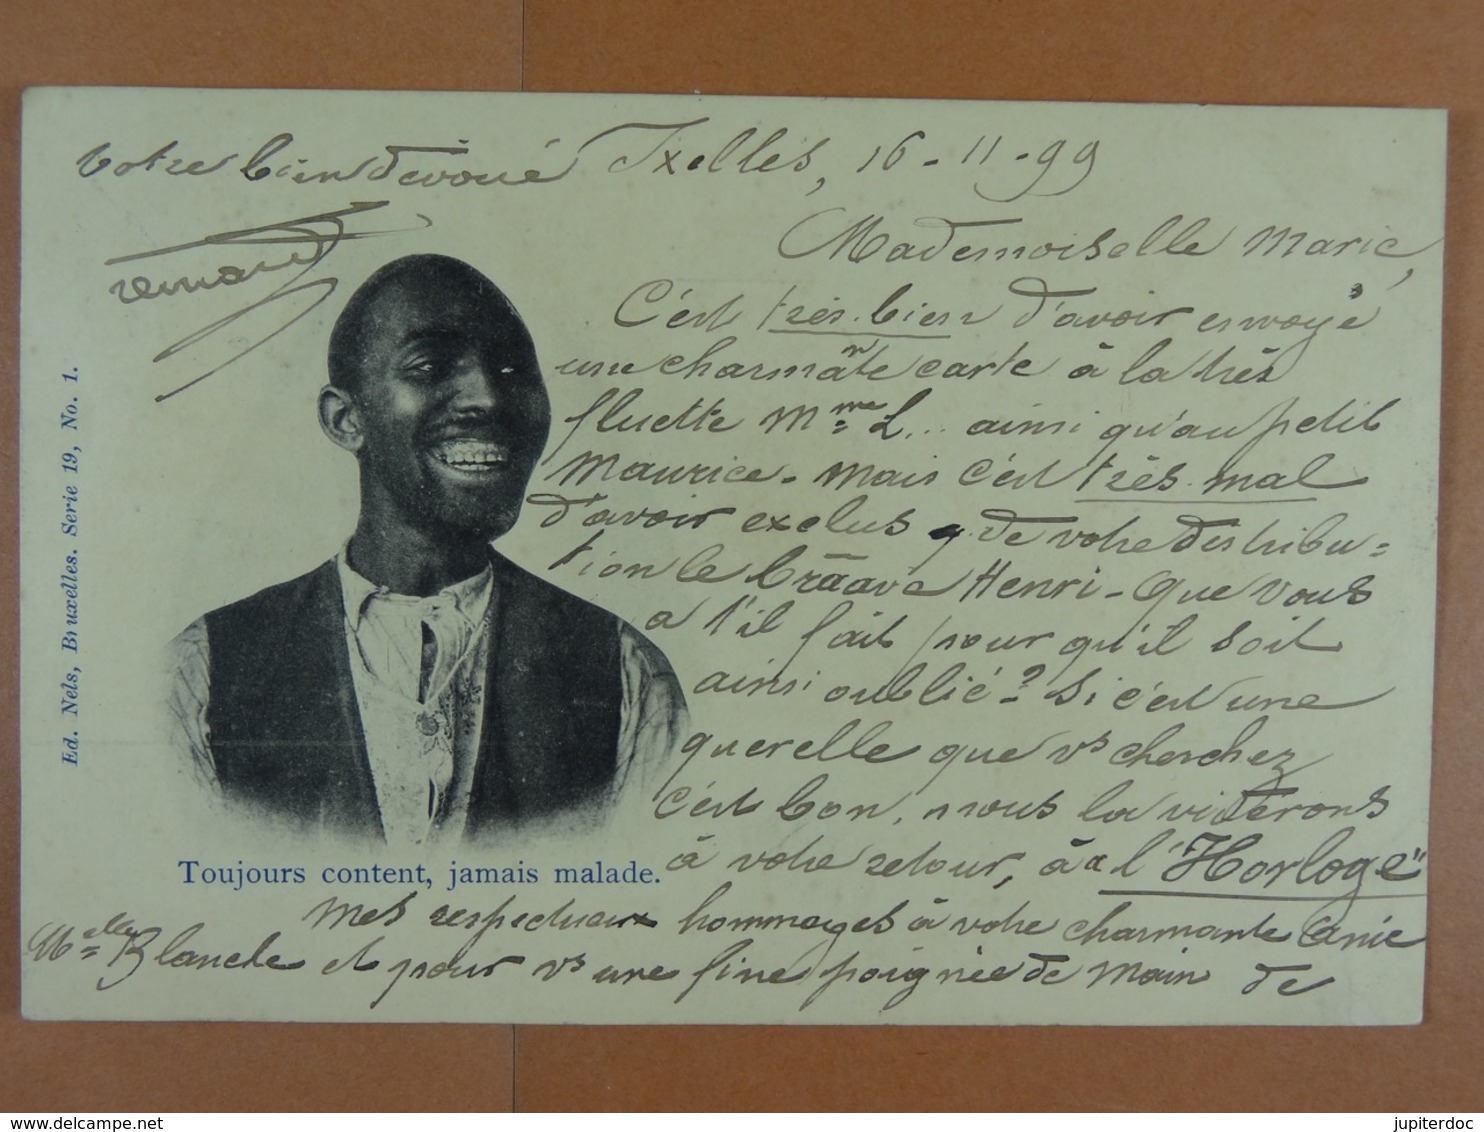 Ixelles, 16-11-99
Mademoiselle Marie,
C'est très-bien d'avoir envoyé
une charmante carte à la très
fluette Mme L... ainsi qu'au petit
Maurice. Mais c'est très-mal
d'avoir exclus de votre distribu=
tion le brāāve Henri - Que vous
a t'il fait pour qu'il soit
ainsi oublié? Si c'est une
querelle que vs cherchez
c'est bon, nous la viderons
à votre retour, à "l'Horloge"
Mes respectueux hommages à votre charmante amie
Melle Blanche et pour vs une fine poignée de main de
votre bien dévoué
Toujours content, jamais malade.
Ed. Nels, Bruxelles. Serie 19, No. 1.
www.delcampe.net
jupiterdoc